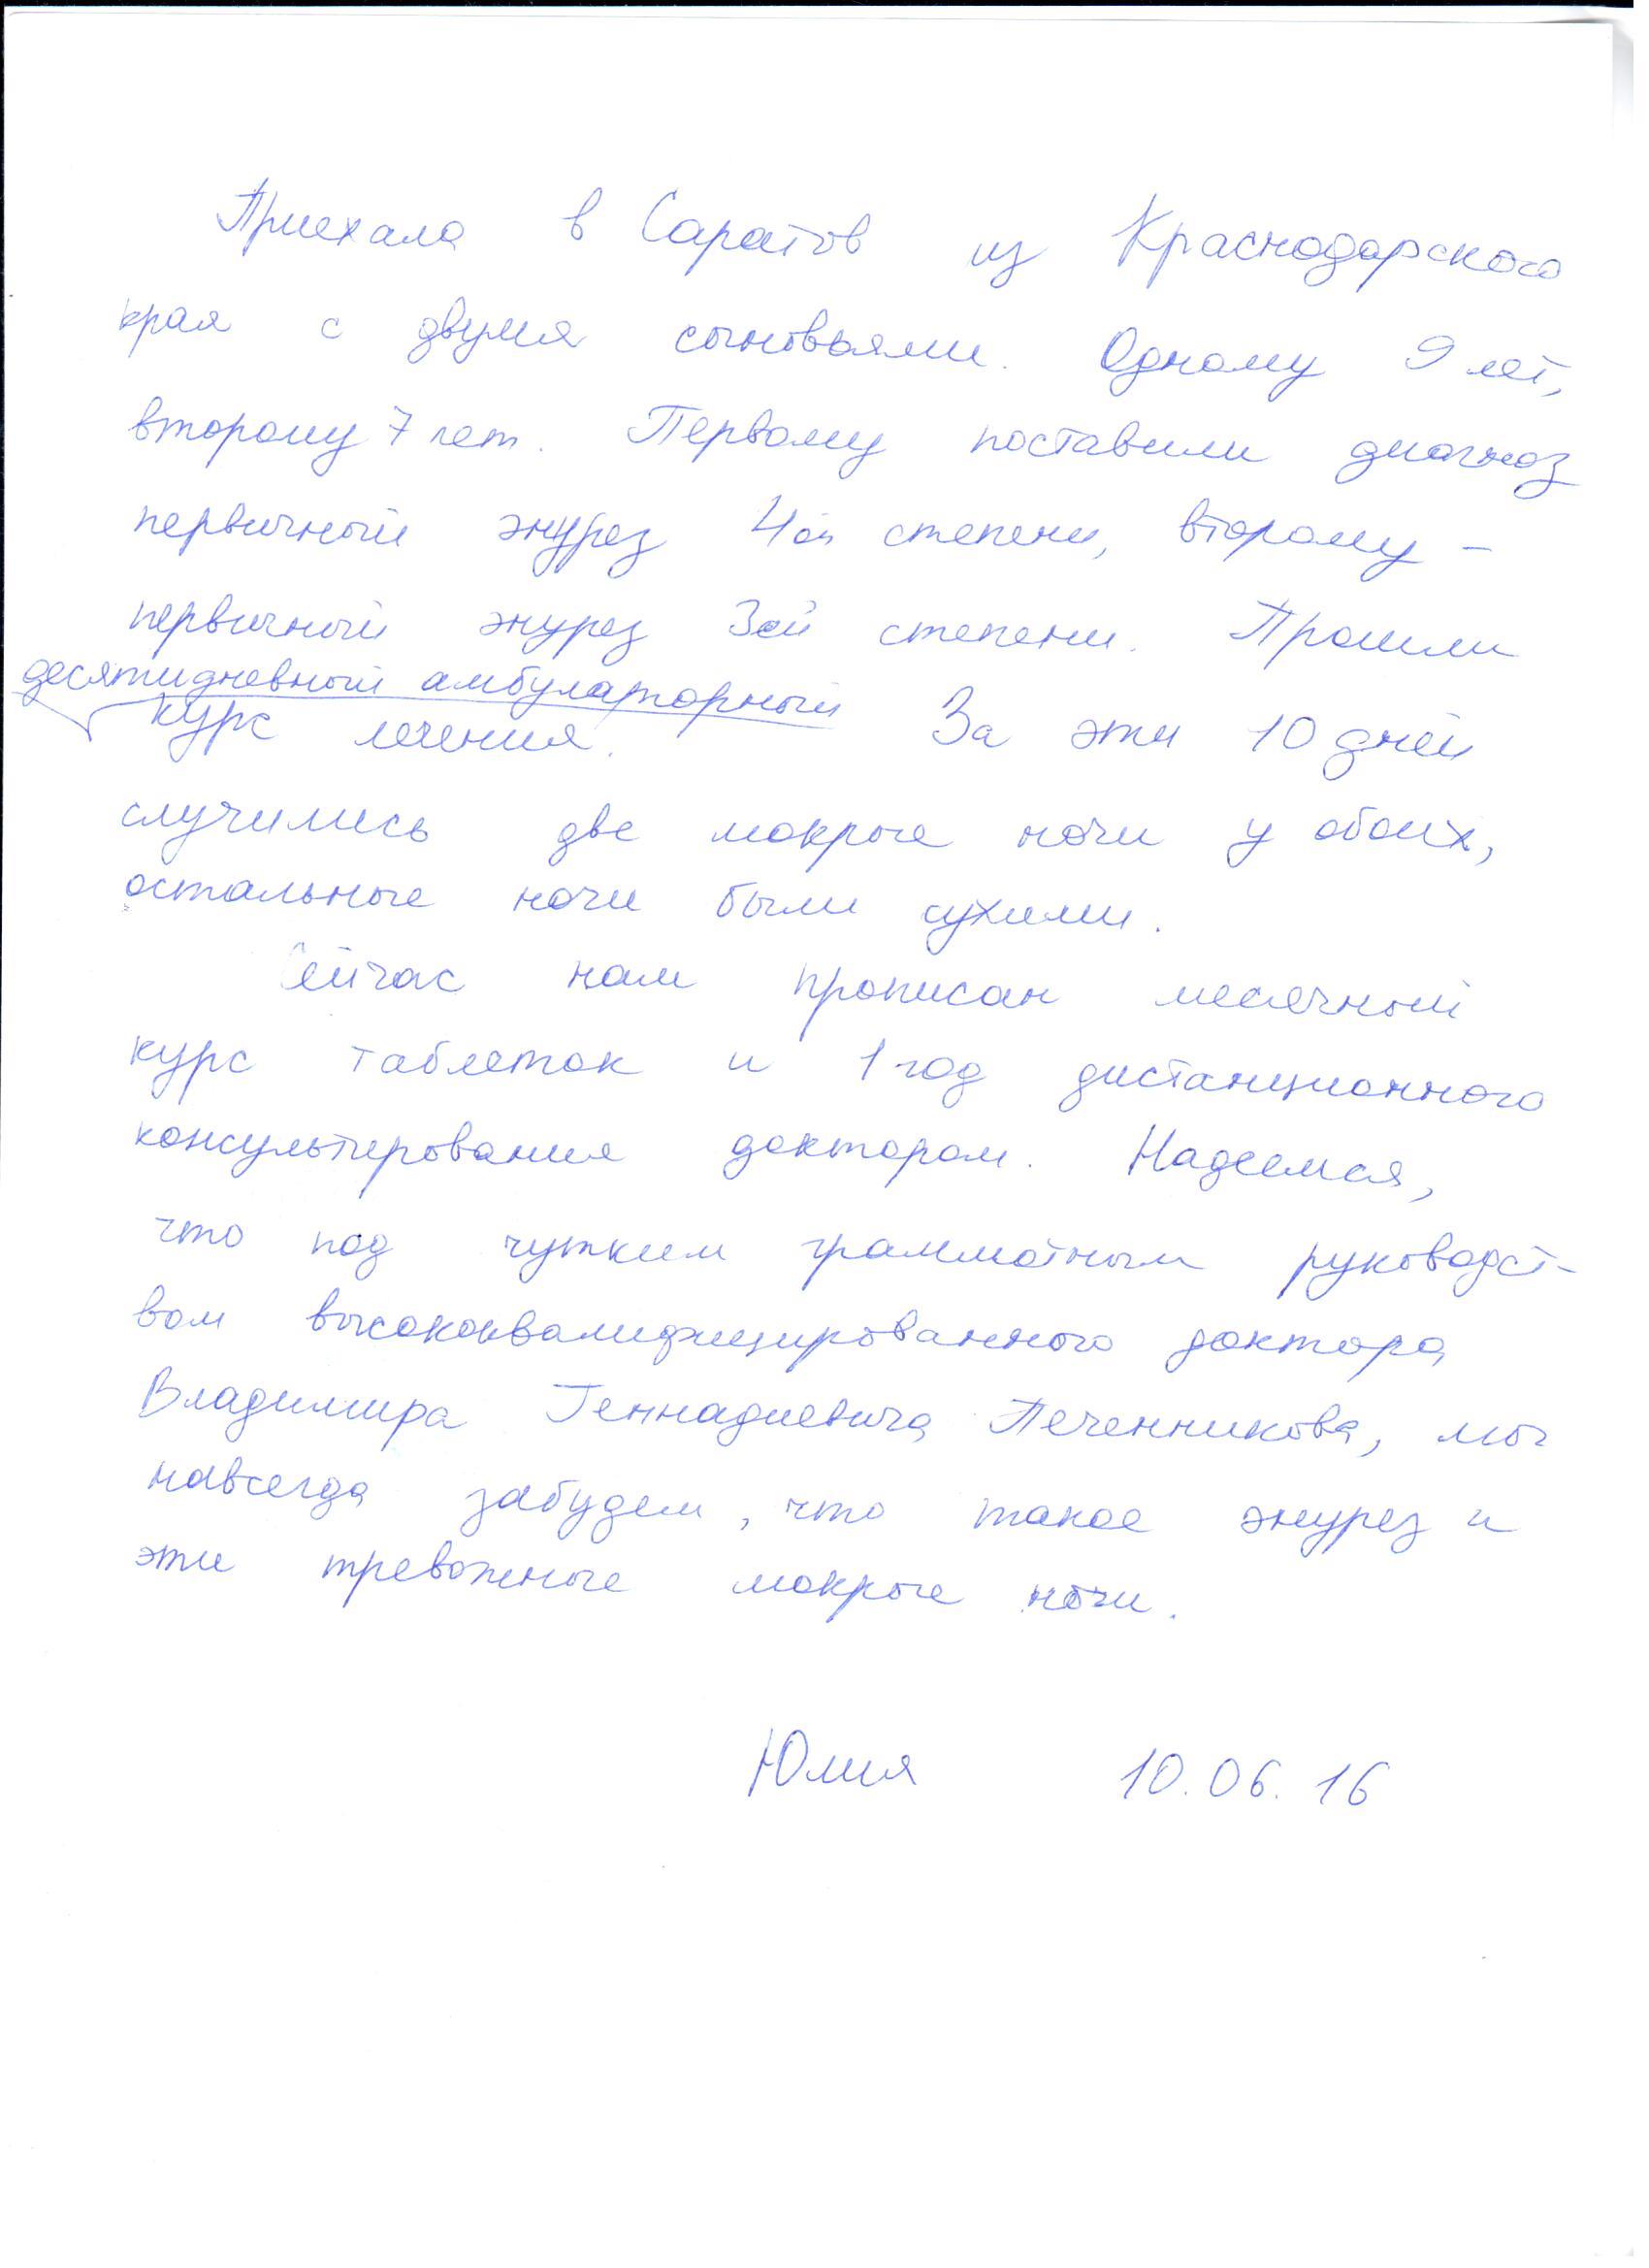 Приехала в Саратов из Краснодарского
края с двумя сыновьями. Одному 9 лет,
второму 7 лет. Первому поставили диагноз
первичный энурез 4ой степени, второму –
первичный энурез 3ей степени. Прошли
десятидневный амбулаторный
курс лечения. За эти 10 дней
случились две мокрые ночи у обоих,
остальные ночи были сухими.
Сейчас нам прописан месячный
курс таблеток и 1 год дистанционного
консультирования доктором. Надеемся,
что под чутким граммотным руководст-
вом высококвалифицированного доктора
Владимира Геннадиевича Печенникова, мы
навсегда забудем, что такое энурез и
эти тревожные мокрые ночи.
Юлия 10.06.16